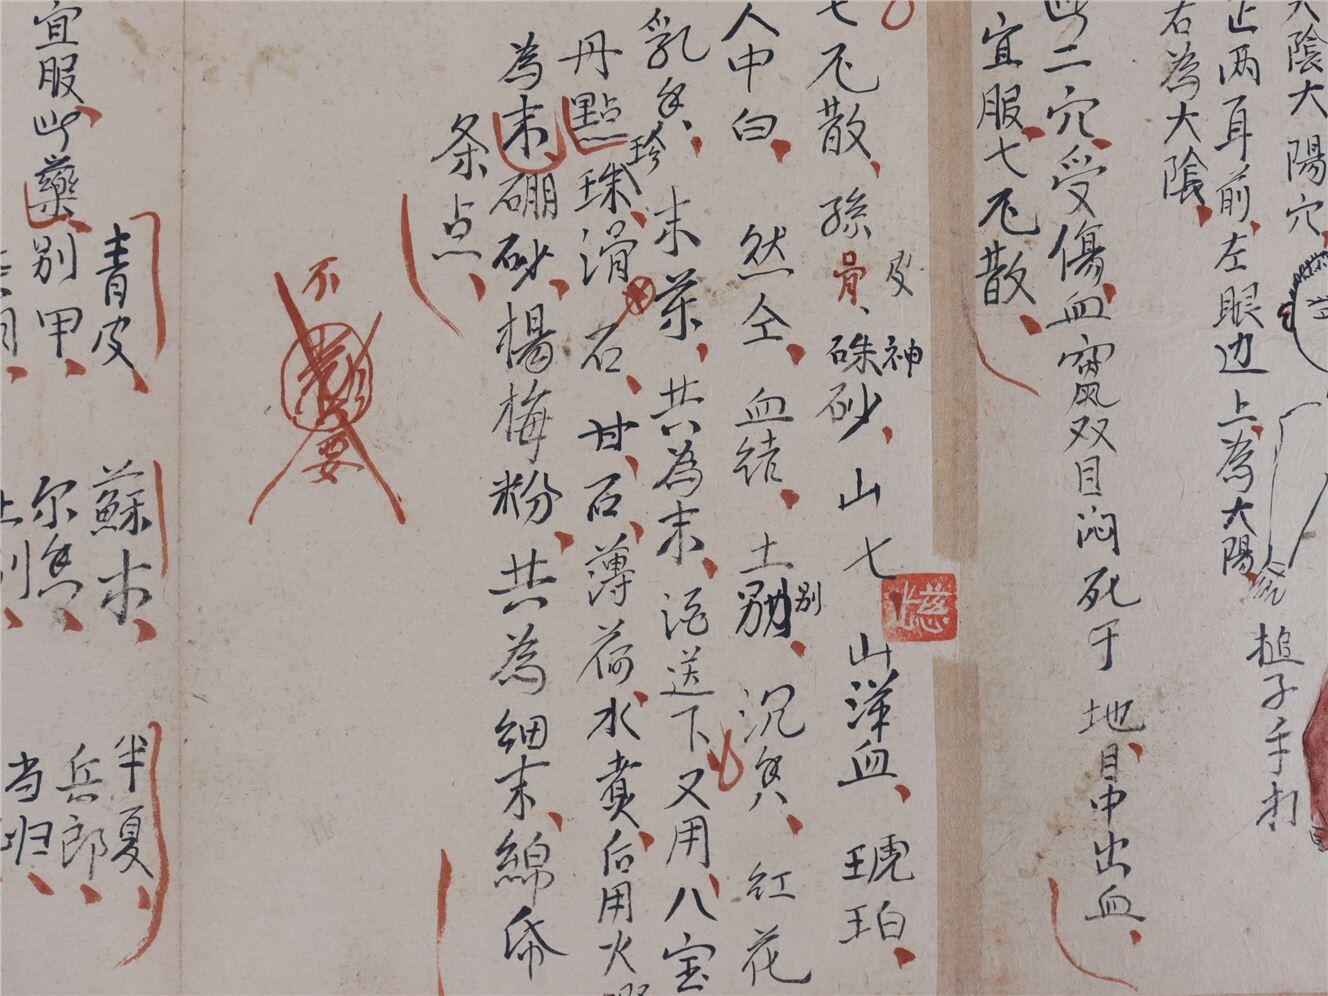 大陰大陽穴
止两耳前左眼边上為大陽
右為大陰
槌子手打
此二穴受傷血竄双目闷死于地目中出血
宜服七厘散
七厘散孫骨皮硃砂神山七山漟血琥珀
人中白然仝血结土别沉香红花
乳香末薬共為末酒送下又用八宝
丹點珠珍滑石甘石薄荷水煮后用火
為末硼砂楊梅粉共為细末綿帋
条点
不要
青皮蘇木半夏
别甲尔香兵郎
宜服此藥
当归